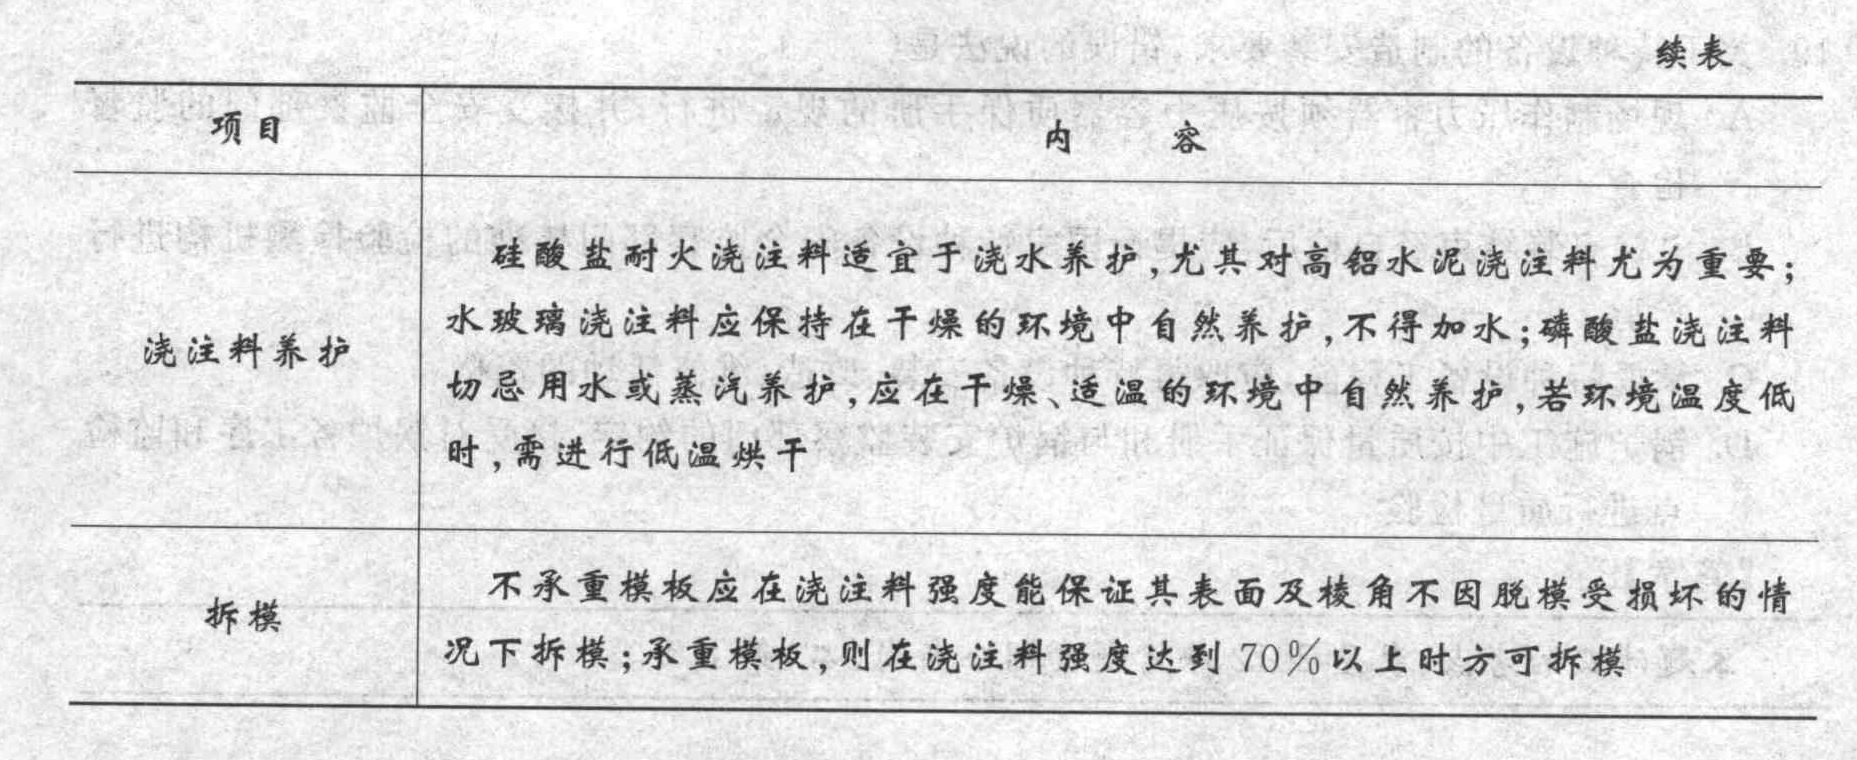 续表
项目
内 容
浇注料养护
硅酸盐耐火浇注料适宜于浇水养护,尤其对高铝水泥浇注料尤为重要;
水玻璃浇注料应保持在干燥的环境中自然养护,不得加水;磷酸盐浇注料
切忌用水或蒸汽养护,应在干燥、适温的环境中自然养护,若环境温度低
时,需进行低温烘干
拆模
不承重模板应在浇注料强度能保证其表面及棱角不因脱模受损坏的情
况下拆模;承重模板,则在浇注料强度达到70%以上时方可拆模